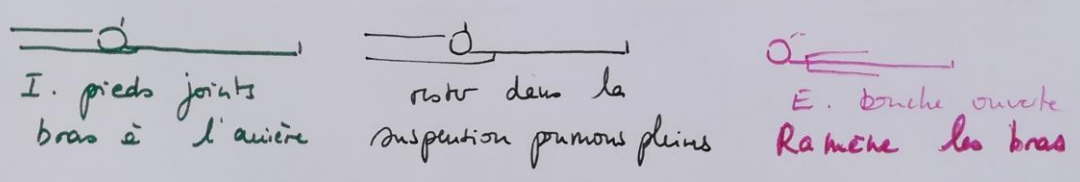 I. pieds joints
bras à l'arrière
rester dans la
suspention poumons pleins
E. bouche ouverte
Ramène les bras